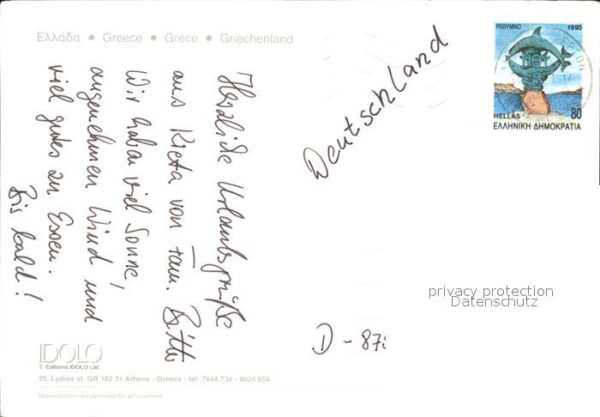 Ελλάδα • Greece • Grece • Griechenland
Herzliche Urlaubsgrüße
aus Kreta von Fam.
Wir haben viel Sonne,
angenehmen Wind und
viel gutes zu Essen.
Bis bald!
Deutschland
D - 87
ΡΕΘΥΜΝΟ 1990
HELLAS 80
ΕΛΛΗΝΙΚΗ ΔΗΜΟΚΡΑΤΙΑ
privacy protection
Datenschutz
IDOLO
Editions IDOLO Ltd.
25, Lydias st. GR 162 31 Athens - Greece - tel: 7644.734 - 9024.654
Reproduction not permitted for all countries